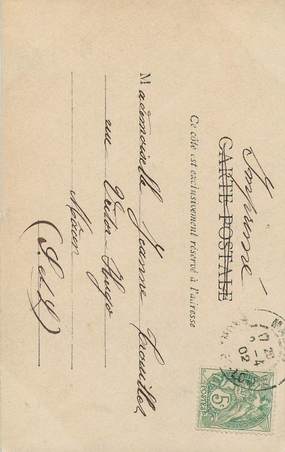 Imprimé
CARTE POSTALE
Ce côté est exclusivement réservé à l'adresse
Mademoiselle Jeanne
rue Victor Hugo
Mâcon
(S. et L.)
5
02